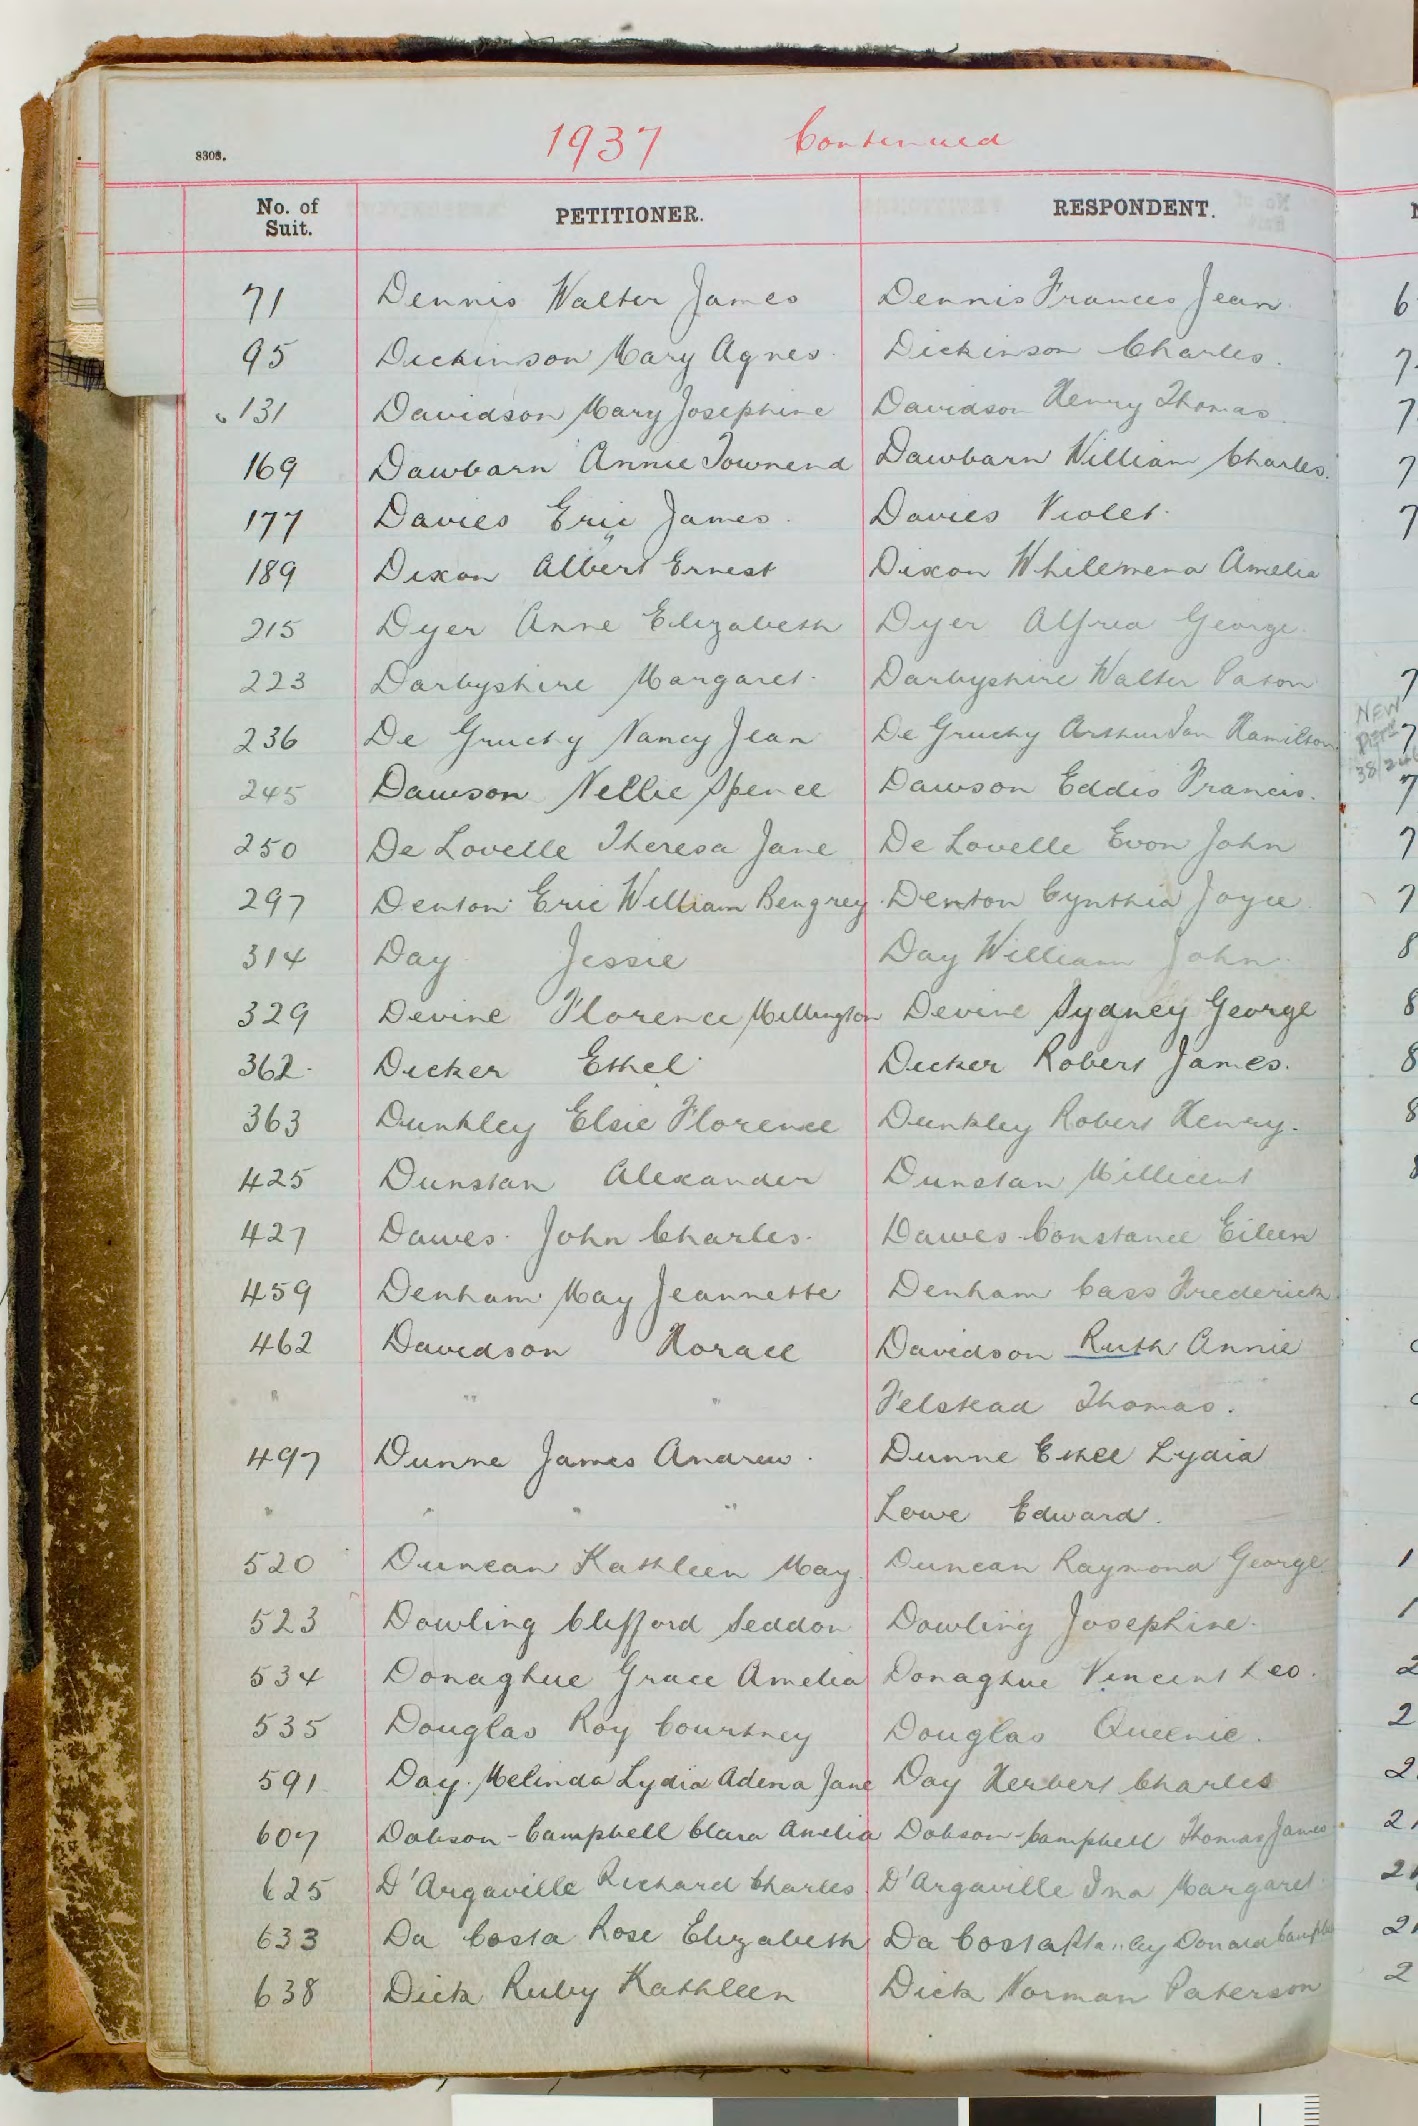 1937 Continued
8303.
No. of Suit. PETITIONER. RESPONDENT.
71 Dennis Walter James Dennis Frances Jean
95 Dickinson Mary Agnes Dickinson Charles.
131 Davidson Mary Josephine Davidson Henry Thomas
169 Dawbarn Annie Townend Dawbarn William Charles.
177 Davies Eric James. Davies Violet.
189 Dixon Albert Ernest Dixon Whilemena Amelia
215 Dyer Anne Elizabeth Dyer Alfred George.
223 Darbyshire Margaret. Darbyshire Walter Paton
236 De Gruchy Nancy Jean De Gruchy Arthur Ian Hamilton
NEW
38/
245 Dawson Nellie Spence Dawson Eddis Francis.
250 De Lovelle Theresa Jane De Lovelle Evon John
297 Denton Eric William Bengrey Denton Cynthia Joyce
314 Day Jessie Day William John
329 Devine Florence Millington Devine Sydney George
362. Dicker Ethel Dicker Robert James.
363 Dunkley Elsie Florence Dunkley Robert Henry.
425 Dunstan Alexander Dunstan Millicent
427 Dawes. John Charles. Dawes Constance Eileen
459 Denham May Jeannette Denham Cass Frederick
462 Davidson Horace Davidson Ruth Annie
" " " Felstead Thomas.
497 Dunne James Andrew. Dunne Ethel Lydia
" " " " Lowe Edward.
520 Duncan Kathleen May Duncan Raymond George
523 Dowling Clifford Seddon Dowling Josephine.
534 Donaghue Grace Amelia Donaghue Vincent Leo.
535 Douglas Roy Courtney Douglas Queenie.
591 Day. Melinda Lydia Adena Jane Day Herbert Charles
607 Dobson-Campbell Clara Amelia Dobson-Campbell Thomas James
625 D'Argaville Richard Charles D'Argaville Ina Margaret
633 Da Costa Rose Elizabeth Da Costa Donald
638 Dick Ruby Kathleen Dick Norman Paterson